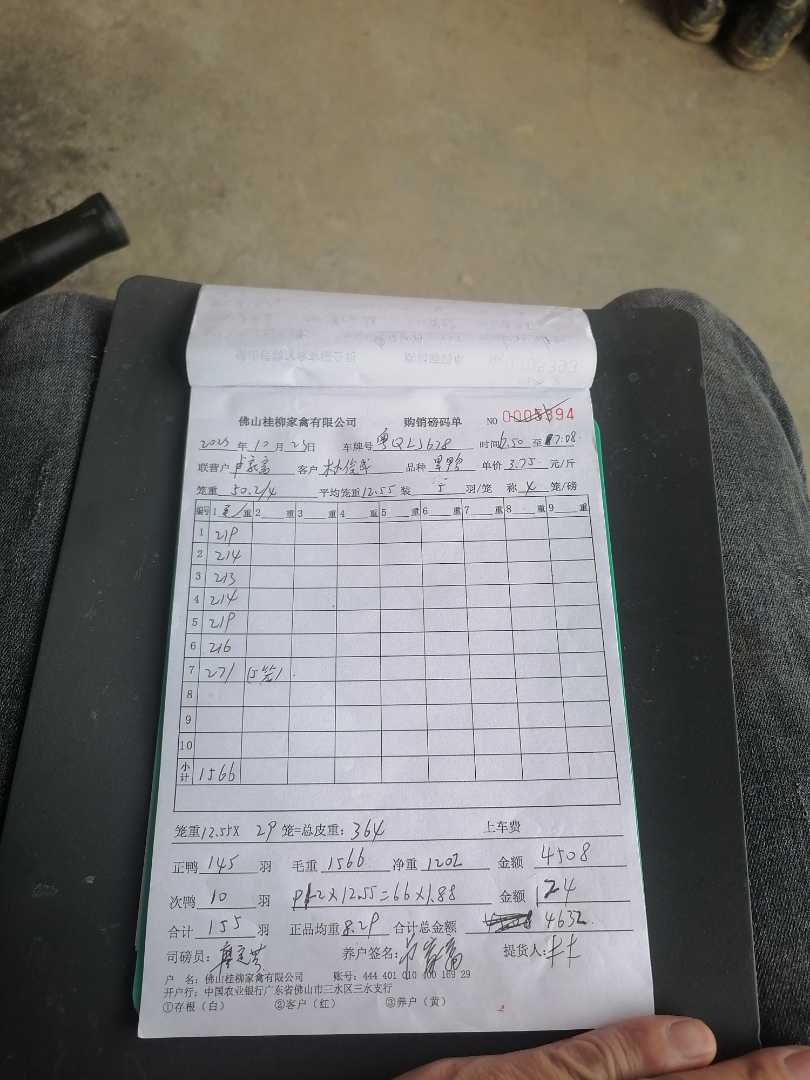 佛山桂柳家禽有限公司 购销磅码单 NO 0005394
2023 年 10 月 23 日 车牌号 粤QLJ678 时间 6.50 至 7:08
联营户 客户 林俊 品种 黑鸭 单价 3.75 元/斤
笼重 50.2/4 平均笼重 12.55 装 5 羽/笼 称 4 笼/磅
编号 1 毛/重 2 重 3 重 4 重 5 重 6 重 7 重 8 重 9 重
1 219
2 214
3 213
4 214
5 219
6 216
7 271 (5笼)
8
9
10
小计 1566
笼重 12.55X 29 笼=总皮重: 364 上车费
正鸭 145 羽 毛重 1566 净重 1202 金额 4508
次鸭 10 羽 2X12.55=66X1.88 金额 124
合计 155 羽 正品均重 8.29 合计总金额 4632.
司磅员: 养户签名: 提货人:
户 名: 佛山桂柳家禽有限公司 账号: 444 401 010 400 169 29
开户行: 中国农业银行广东省佛山市三水区三水支行
①存根(白) ②客户(红) ③养户(黄)